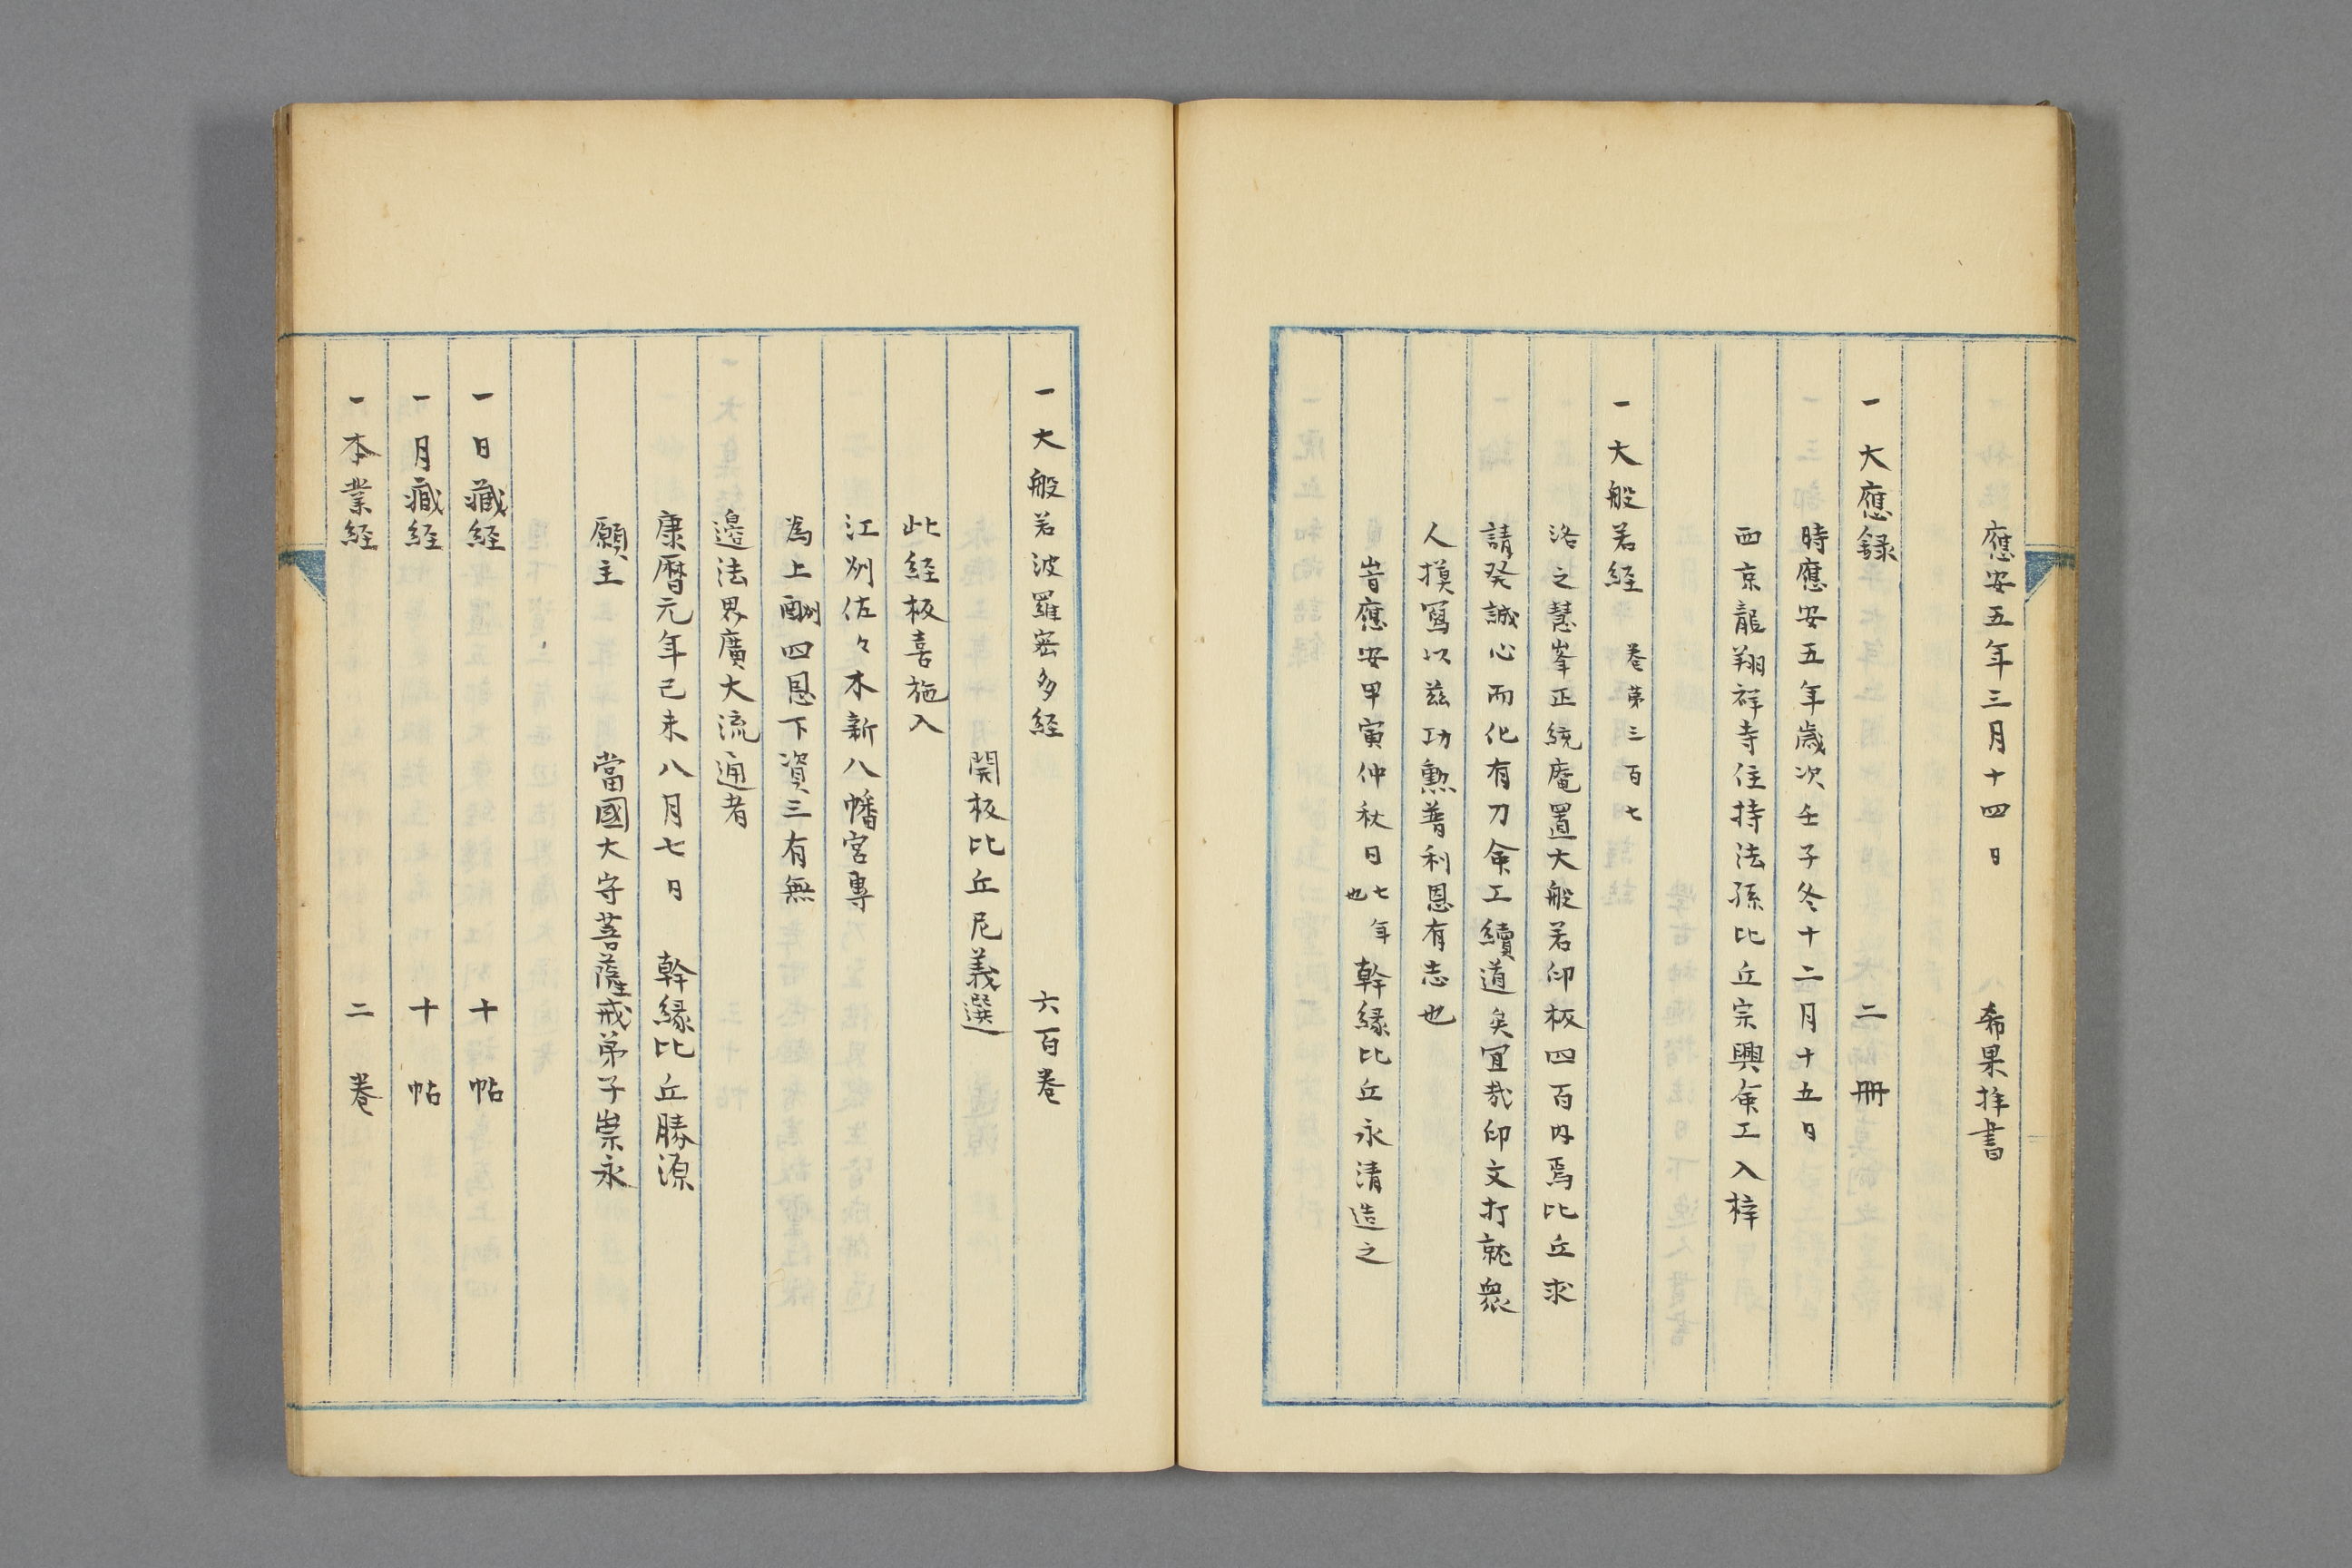 應安五年三月十四日　希果拜書
一大應録　二冊
時應安五年歳次壬子冬十二月十五日
西京龍翔祥寺住持法孫比丘宗興命工入梓
一大般若経　卷第三百七
洛之慧峯正統庵置大般若印板四百内焉比丘求
請発誠心而化有刀命工續道矣宜哉印文打就衆
人摸寫以茲功勲普利恩有志也
旹應安甲寅仲秋日七年也　幹縁比丘永清造之
一大般若波羅密多経　六百卷
開板比丘尼義選
此経板喜施入
江刕佐々木新八幡宮專
為上酬四恩下資三有無
邉法界廣大流通者
康暦元年己未八月七日　幹縁比丘勝源
願主　當國大守菩薩戒弟子崇永
一日藏経　十帖
一月藏経　十帖
一本業経　二卷